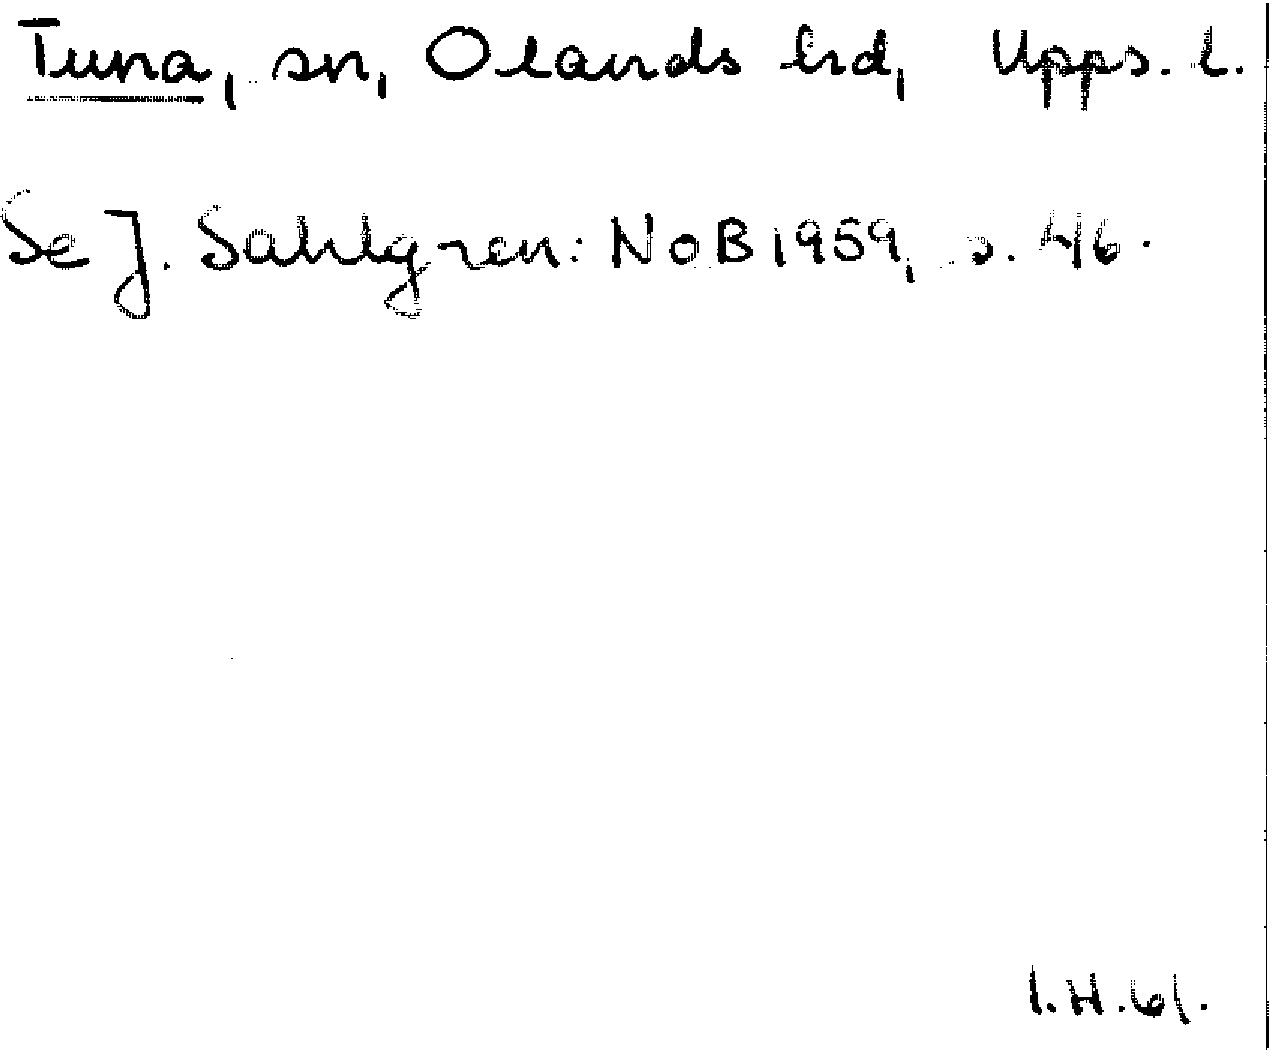 Tuna, sn, Olands hd, Upps. l.
Se J. Sahlgren: NoB 1959, s. 46.
I.H.61.